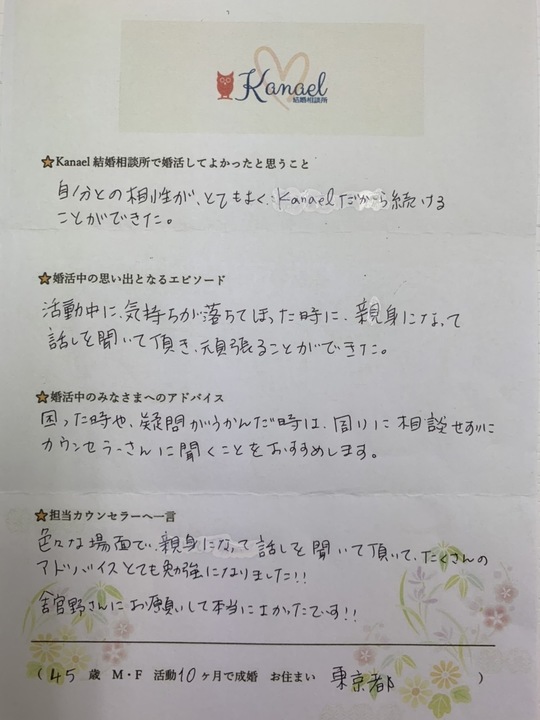 Kanael
結婚相談所
★Kanael 結婚相談所で婚活してよかったと思うこと
自分との相性が、とてもよく、Kanaelだから続ける
ことができた。
★婚活中の思い出となるエピソード
活動中に、気持ちが落ちてしまった時に、親身になって
話しを聞いて頂き、頑張ることができた。
★婚活中のみなさまへのアドバイス
困った時や、疑問がうかんだ時は、周りに相談せずに
カウンセラーさんに聞くことをおすすめします。
★担当カウンセラーへ一言
色々な場面で、親身になって話しを聞いて頂いて、たくさんの
アドバイスとても勉強になりました!!
野さんにお願いして本当によかったです!!
(45歳 M・F 活動10ヶ月で成婚 お住まい 東京都)